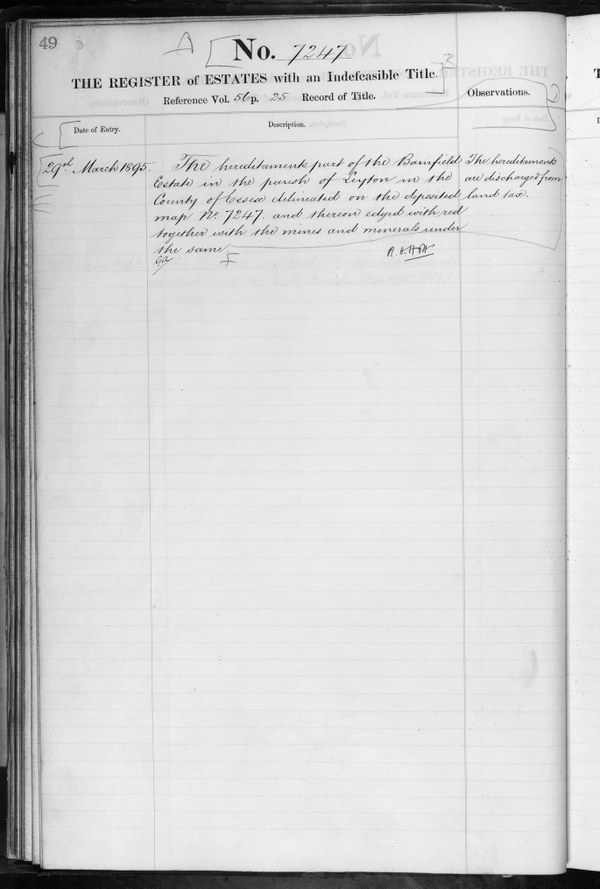 49
No. 7247
THE REGISTER of ESTATES with an Indefeasible Title.
Reference Vol. 56 p. 25 Record of Title.
Observations.
Date of Entry.
Description.
29th March 1895.
The hereditaments part of the Barnfield
Estate in the parish of Leyton in the
County of Essex delineated on the deposited
map No. 7247. and thereon edged with red
together with the mines and minerals under
the same
The hereditaments
are discharged from
land tax.